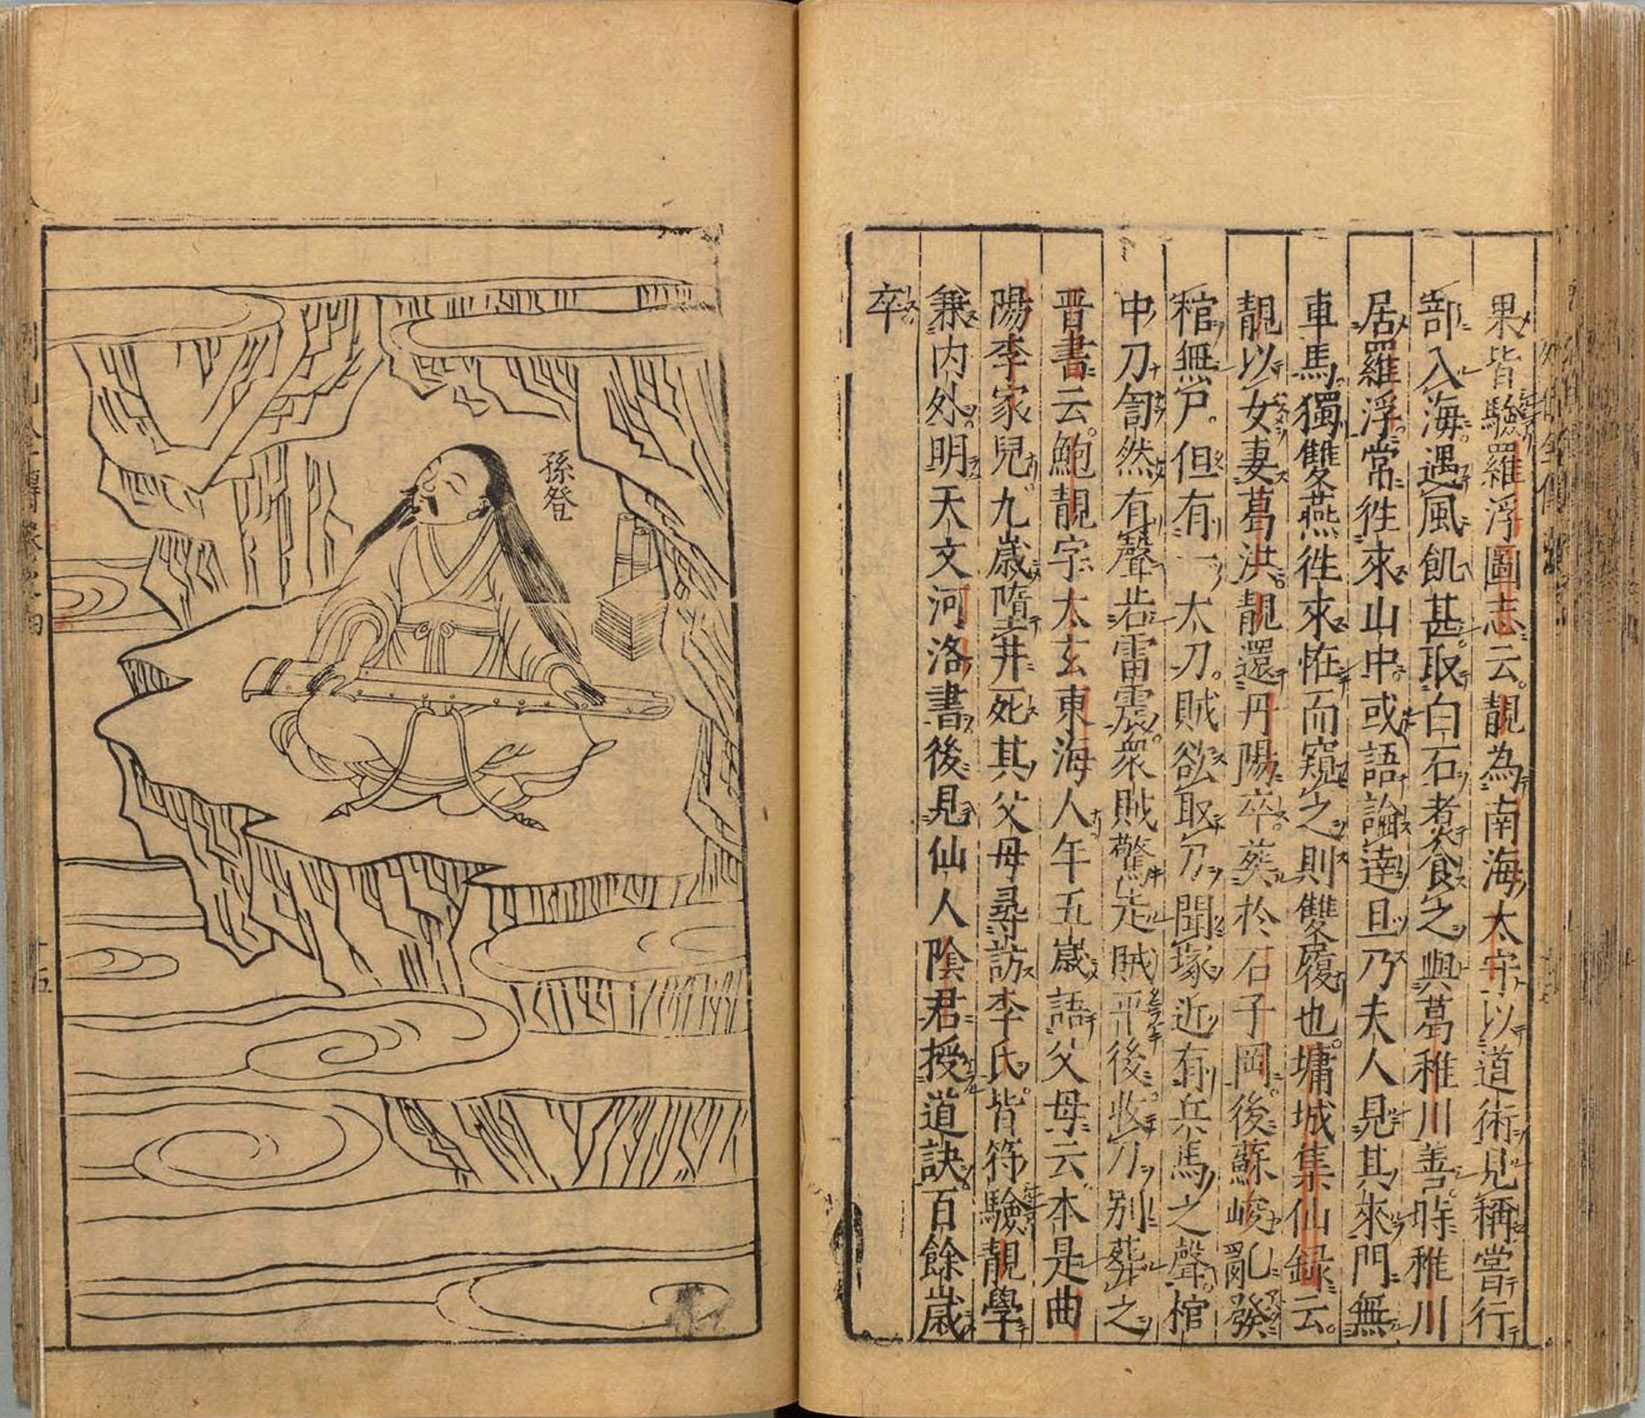 果皆驗羅浮圖志云靚為南海太守以道術見稱嘗行
部入海遇風飢甚取白石煮食之與葛稚川善時稚川
居羅浮常徃來山中或語論達旦乃去人見其來門無
車馬獨雙燕徃來恠而窺之則雙履也墉城集仙録云
靚以女妻葛洪靚還丹陽卒葬於石子岡後蘇峻亂發
棺無尸但有一太刀賊欲取刀聞塚近有兵馬之聲棺
中刀訇然有聲若雷震衆賊驚走賊平後收刀别葬之
晋書云鮑靚字太玄東海人年五歲語父母云本是曲
陽李家兒九歲墮井死其父母尋訪李氏皆符驗靚學
兼内外明天文河洛書後見仙人陰君授道訣百餘歲
卒
孫登
十五